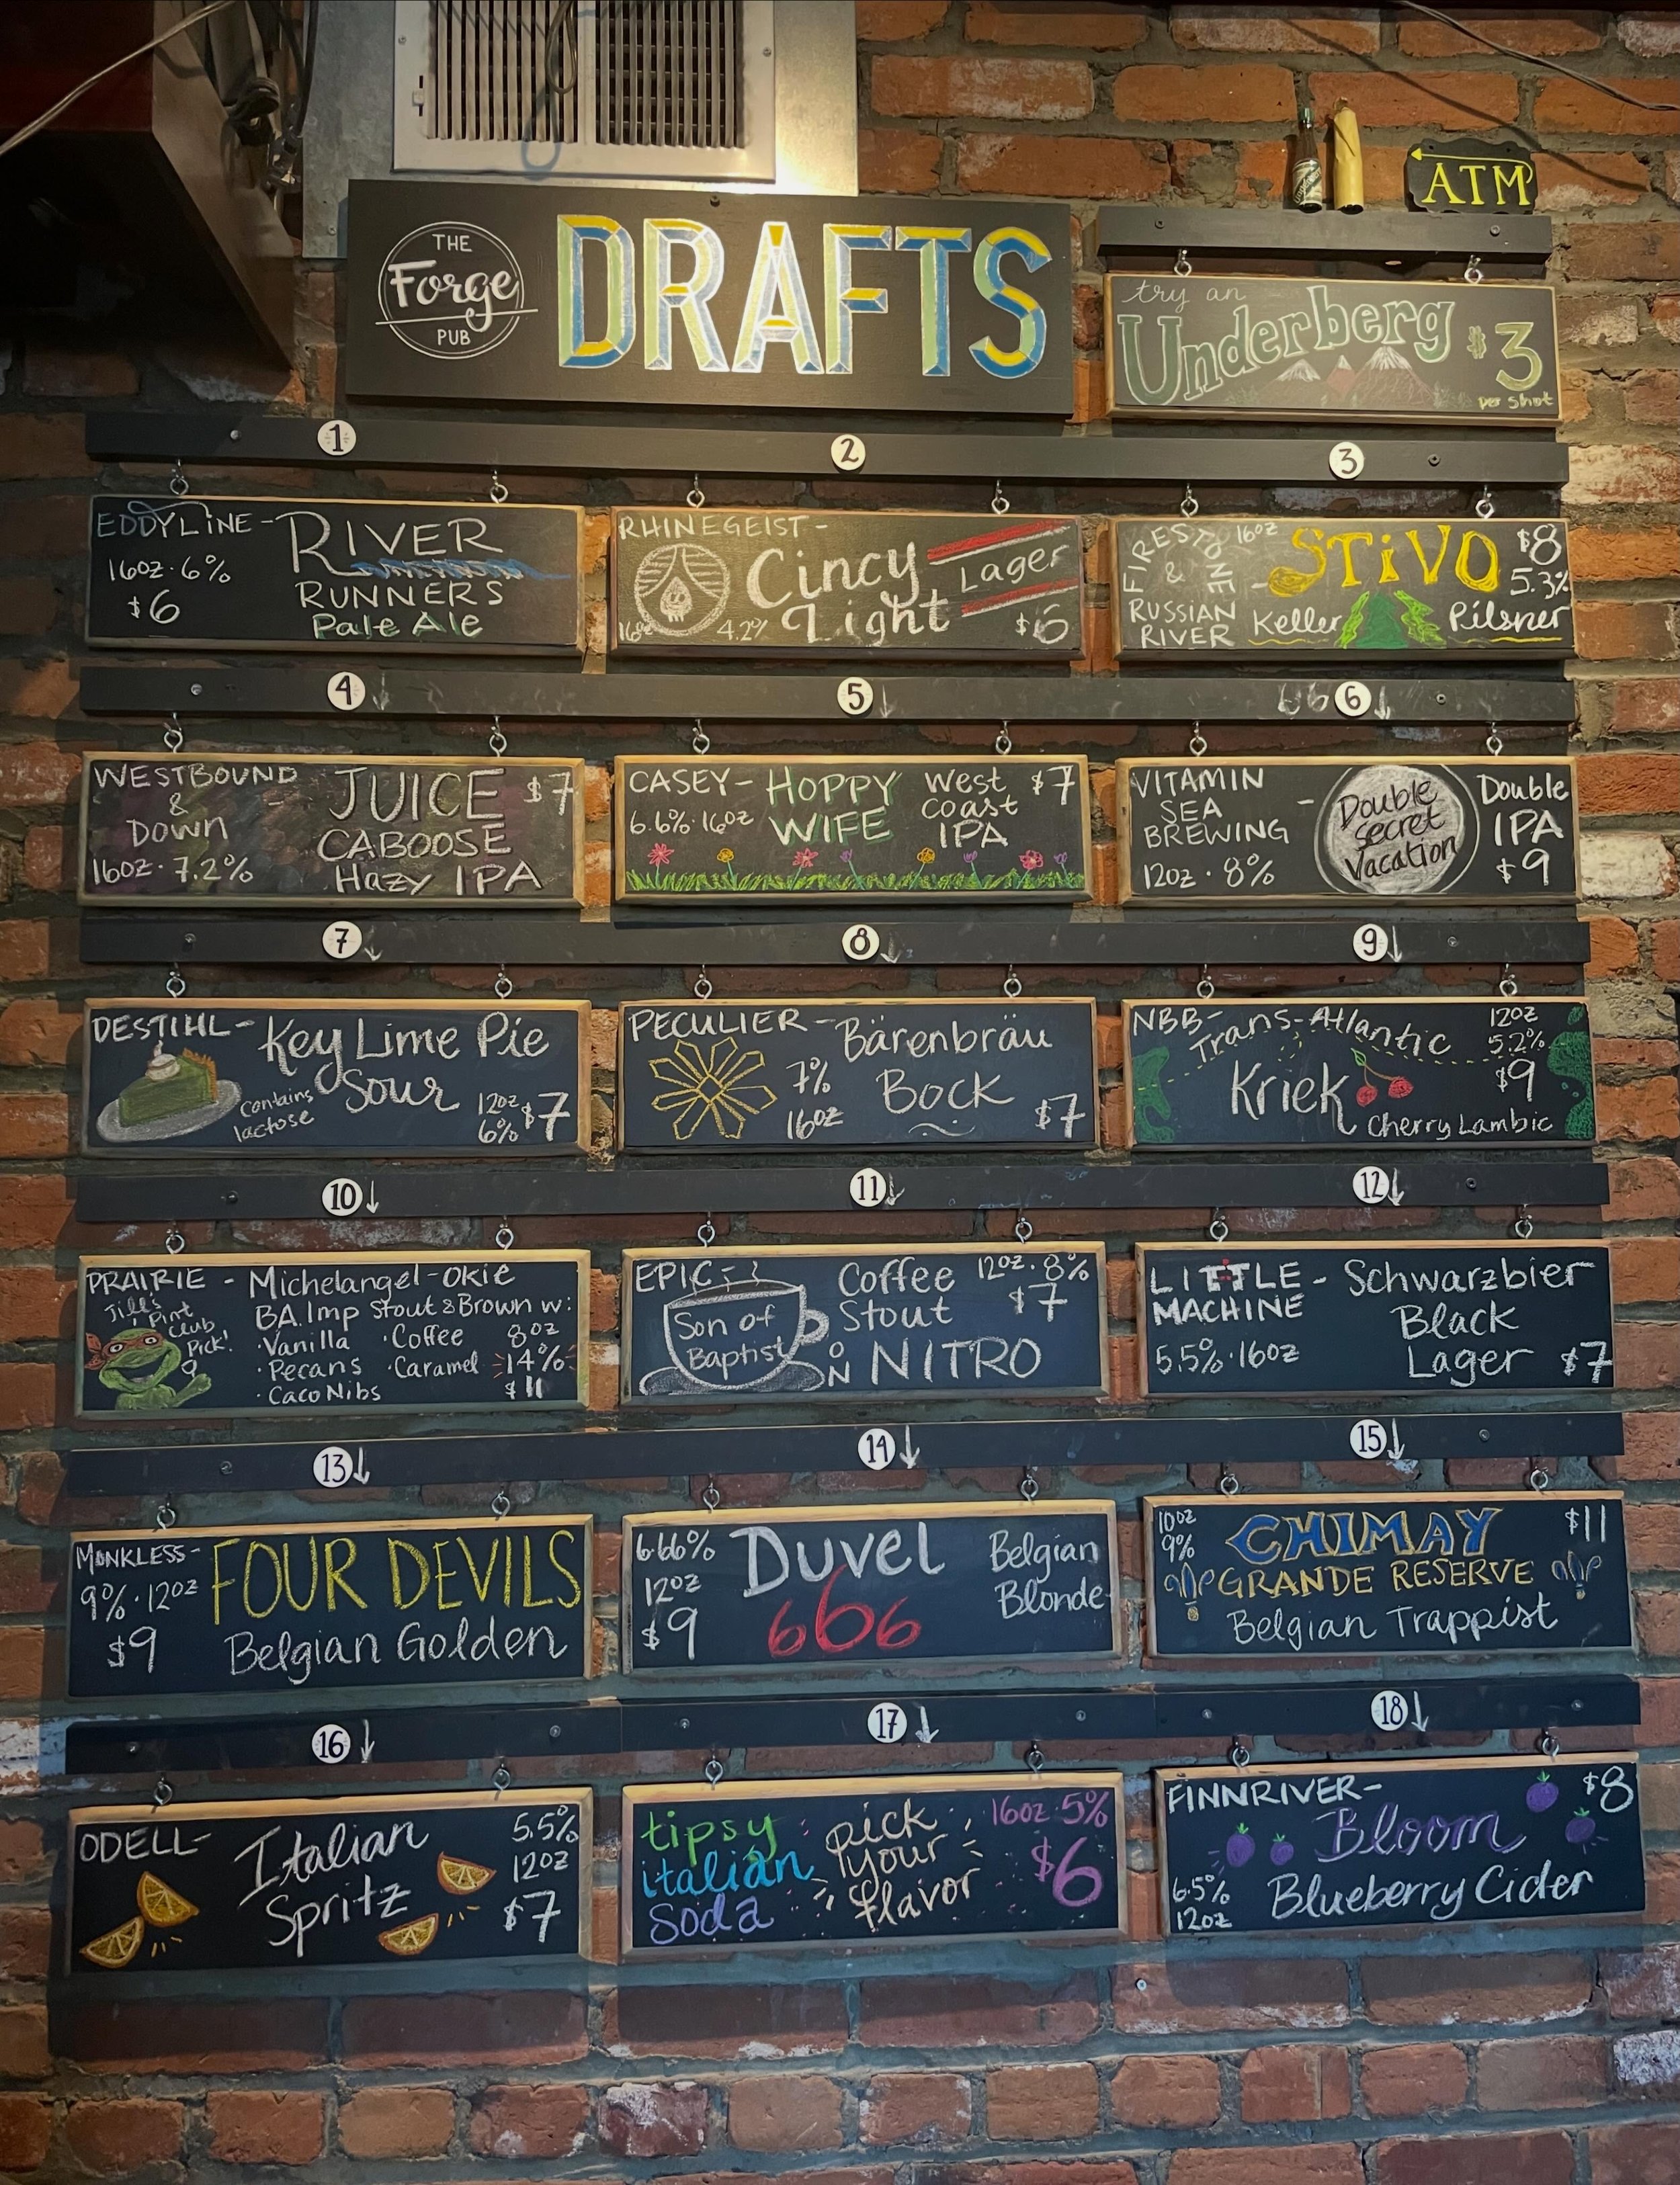 THE
Forge
PUB
DRAFTS
ATM
try an
Underberg
$3
per shot
1
EDDYLINE - RIVER
RUNNERS
Pale Ale
16oz · 6%
$6
2
RHINEGEIST -
Cincy
Light
Lager
16oz
4.2%
$6
3
FIRESTONE
&
RUSSIAN
RIVER
16oz
- STiVO
Keller Pilsner
$8
5.3%
4
WESTBOUND
&
DOWN
16oz · 7.2%
JUICE
CABOOSE
Hazy IPA
$7
5
CASEY - HOPPY
WIFE
6.6% · 16oz
West
coast
IPA
$7
666
6
VITAMIN
SEA
BREWING
-
12oz · 8%
Double
Secret
Vacation
Double
IPA
$9
7
DESTIHL - Key Lime Pie
Sour
contains
lactose
12oz
6%
$7
8
PECULIER - Bärenbräu
Bock
7%
16oz
$7
9
NBB - Trans-Atlantic
Kriek
Cherry Lambic
12oz
5.2%
$9
10
PRAIRIE - Michelangel-Okie
BA. Imp Stout & Brown w:
· Vanilla · Coffee
· Pecans · Caramel
· Caco Nibs
Jill's
Pint
Club
Pick!
8oz
14%
$11
11
EPIC -
Son of
Baptist
Coffee
Stout
ON NITRO
12oz · 8%
$7
12
LITTLE -
MACHINE
5.5% · 16oz
Schwarzbier
Black
Lager
$7
13
MONKLESS -
9% · 12oz
$9
FOUR DEVILS
Belgian Golden
14
6.66%
12oz
$9
Duvel
666
Belgian
Blonde
15
10oz
9%
CHIMAY
GRANDE RESERVE
Belgian Trappist
$11
16
ODELL -
Italian
Spritz
5.5%
12oz
$7
17
tipsy
italian
soda
pick
your
flavor
16oz · 5%
$6
18
FINNRIVER -
Bloom
Blueberry Cider
6.5%
12oz
$8